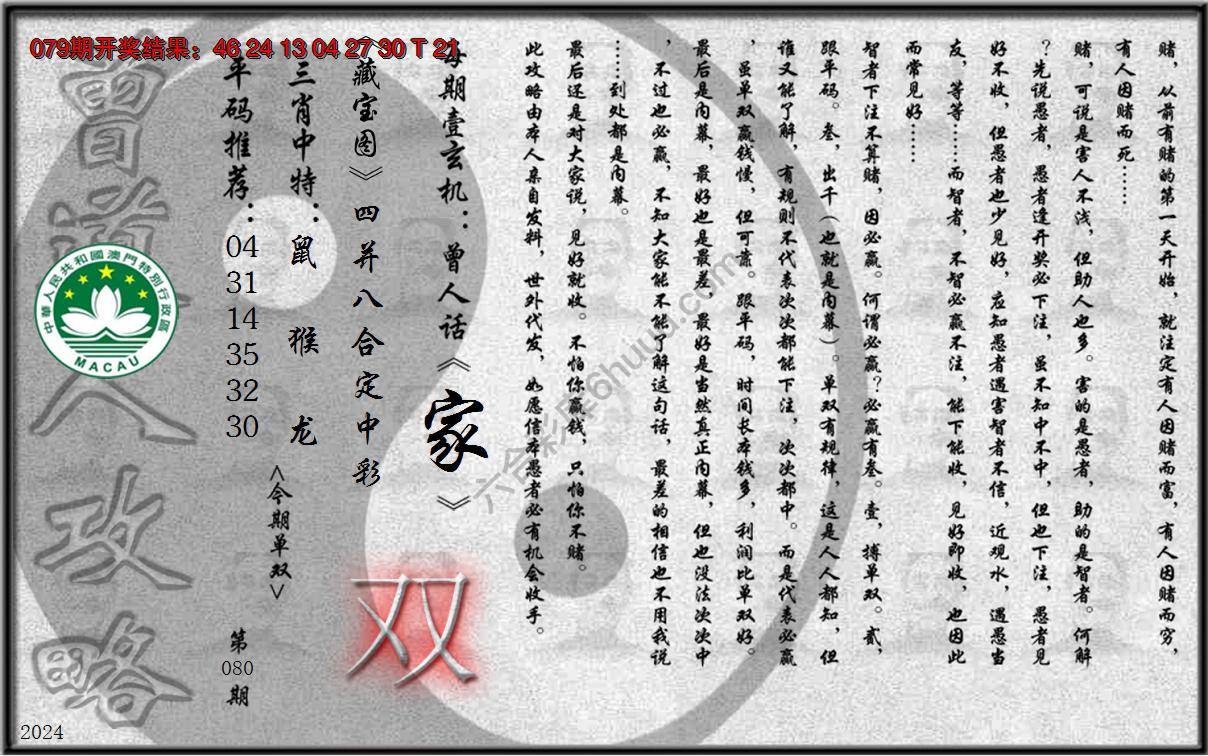 079期开奖结果：46 24 13 04 27 30 T 21
赌，从前有赌的第一天开始，就注定有人因赌而富，有人因赌而穷，
有人因赌而死……
赌，可说是害人不浅，但助人也多。害的是愚者，助的是智者。何解
？先说愚者，愚者逢开奖必下注，虽不知中不中，但也下注，愚者见
好不收，但愚者也少见好，应知愚者遇害智者不信，近观水，遇愚当
友，等等……而智者，不智必赢不注，能下能收，见好即收，也因此
而常见好……
智者下注不算赌，因必赢。何谓必赢？必赢有叁。壹，搏单双。贰，
跟平码。叁，出千（也就是内幕）。单双有规律，这是人人都知，但
谁又能了解，有规则不代表次次都能下注，次次都中。而是代表必赢
，虽单双赢钱慢，但可靠。跟平码，时间长本钱多，利润比单双好。
最后是内幕，最好也是最差，最好是当然真正内幕，但也没法次次中
，不过也必赢，不知大家能不能了解这句话，最差的相信也不用我说
……到处都是内幕。
最后还是对大家说，见好就收。不怕你赢钱，只怕你不赌。
此攻略由本人亲自发料，世外代发，如愿信本愚者必有机会收手。
每期壹玄机：曾人话《家》
《藏宝图》四并八合定中彩
三肖中特：鼠 猴 龙
<今期单双>
双
平码推荐：
04
31
14
35
32
30
第
080
期
曾道人攻略
中華人民共和國澳門特別行政區
MACAU
六合彩库6huuu.com
2024